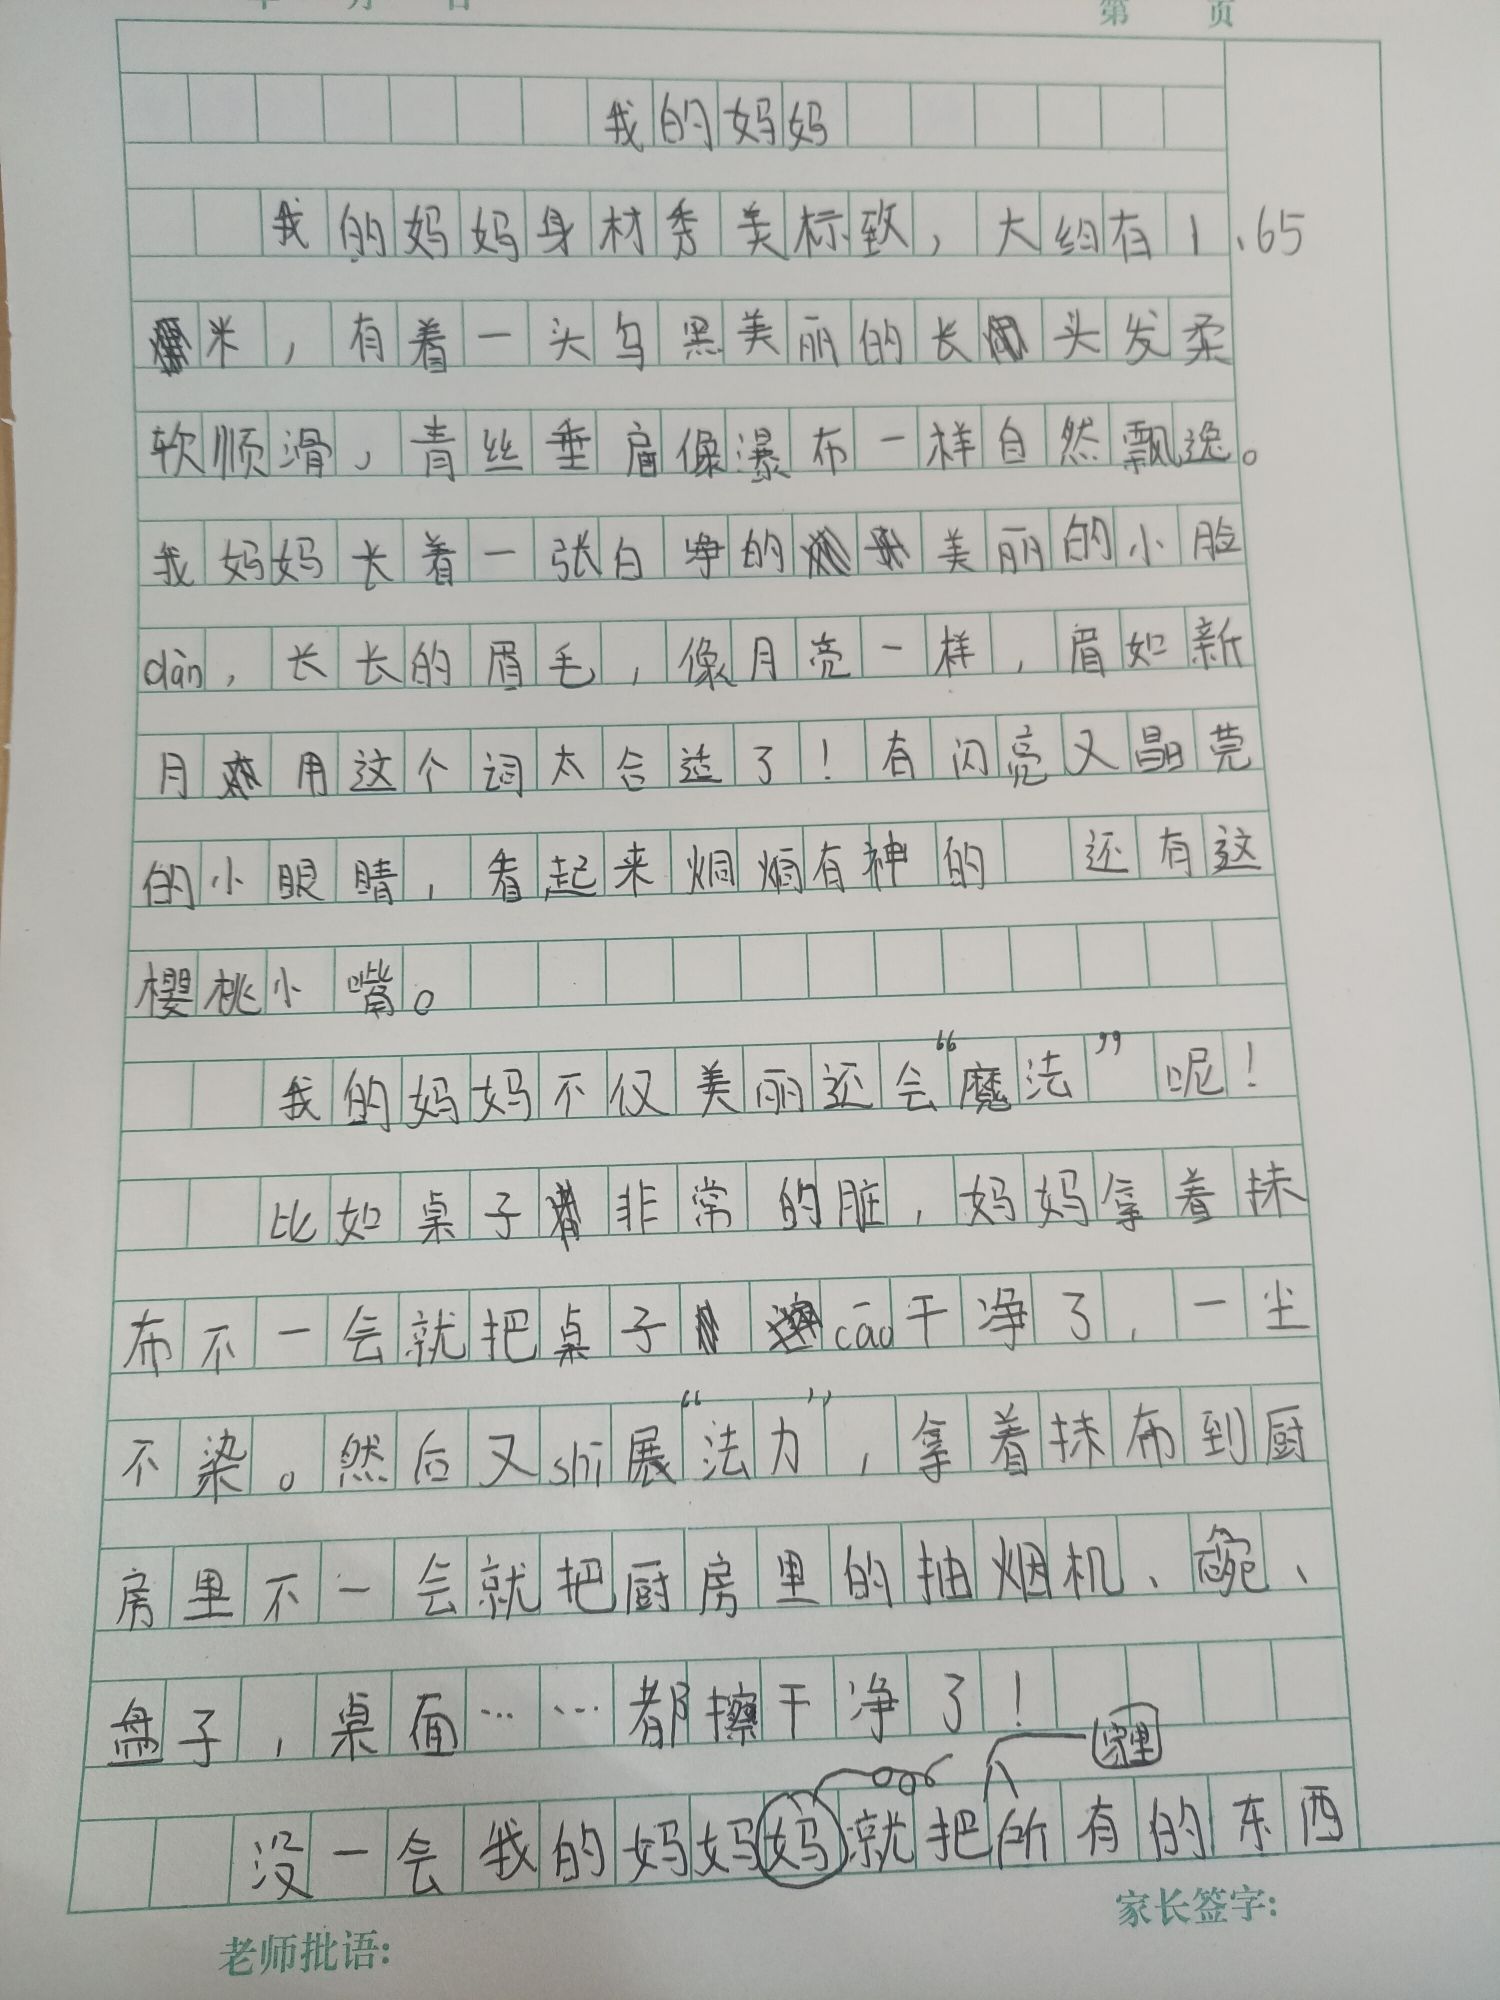 年 月 日 第 页
我的妈妈
我的妈妈身材秀美标致，大约有1.65
米，有着一头乌黑美丽的长头发柔
软顺滑，青丝垂肩像瀑布一样自然飘逸。
我妈妈长着一张白净的美丽的小脸
dàn，长长的眉毛，像月亮一样，眉如新
月用这个词太合适了！有闪亮又晶莹
的小眼睛，看起来炯炯有神的 还有这
樱桃小嘴。
我的妈妈不仅美丽还会“魔法”呢！
比如桌子非常的脏，妈妈拿着抹
布不一会就把桌子cāo干净了，一尘
不染。然后又shī展“法力”，拿着抹布到厨
房里不一会就把厨房里的抽烟机、碗、
盘子，桌面……都擦干净了！
没一会我的妈妈就把家里所有的东西
家长签字:
老师批语: